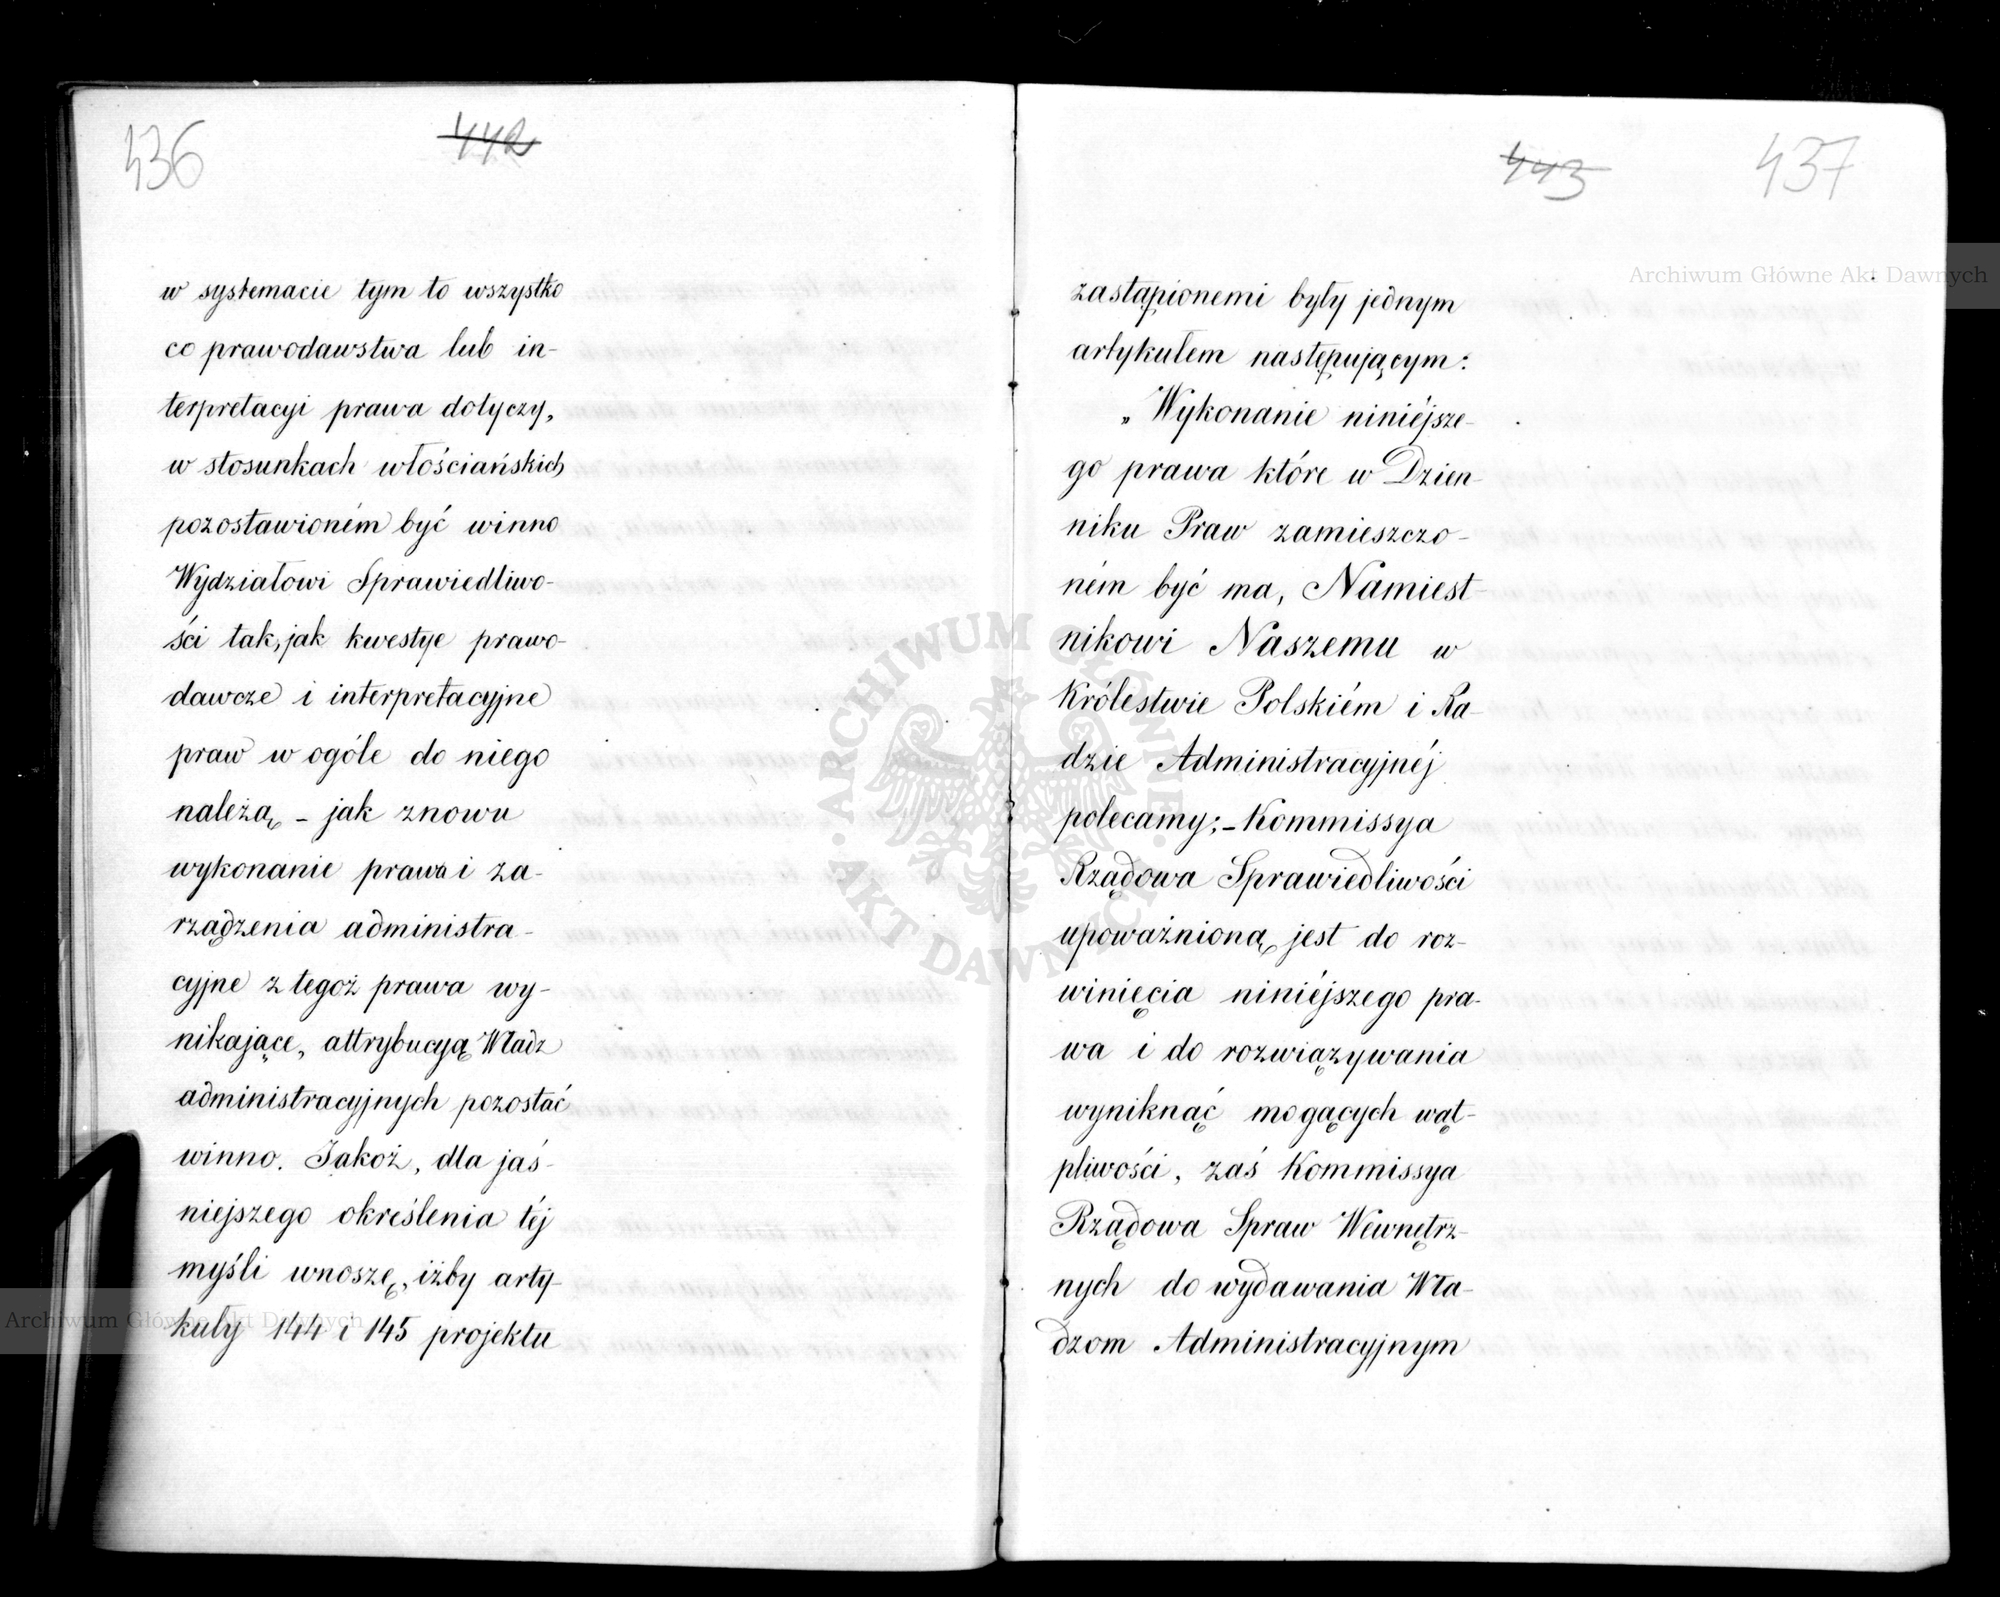 436
442
w systemacie tym to wszystko
co prawodawstwa lub in-
terpretacyi prawa dotyczy,
w stosunkach włościańskich
pozostawioném być winno
Wydziałowi Sprawiedliwo-
ści tak, jak kwestye prawo-
dawcze i interpretacyjne
praw w ogóle do niego
należą, – jak znowu
wykonanie prawa i za-
rządzenia administra-
cyjne z tegoż prawa wy-
nikające, attrybucyą Władz
administracyjnych pozostać
winno. Jakoż, dla jaś-
niejszego określenia téj
myśli wnoszę, iżby arty-
kuły 144 i 145 projektu
443
437
zastąpionemi były jednym
artykułem następującym:
„Wykonanie niniéjsze-
go prawa które w Dzien-
niku Praw zamieszczo-
ném być ma, Namiest-
nikowi Naszemu w
Królestwie Polskiém i Ra-
dzie Administracyjnéj
polecamy; – Kommissya
Rządowa Sprawiedliwości
upoważnioną jest do roz-
winięcia niniéjszego pra-
wa i do rozwiązywania
wyniknąć mogących wąt-
pliwości, zaś Kommissya
Rządowa Spraw Wewnętrz-
nych do wydawania Wła-
dzom Administracyjnym
Archiwum Główne Akt Dawnych
Archiwum Główne Akt Dawnych
ARCHIWUM GŁÓWNE AKT DAWNYCH